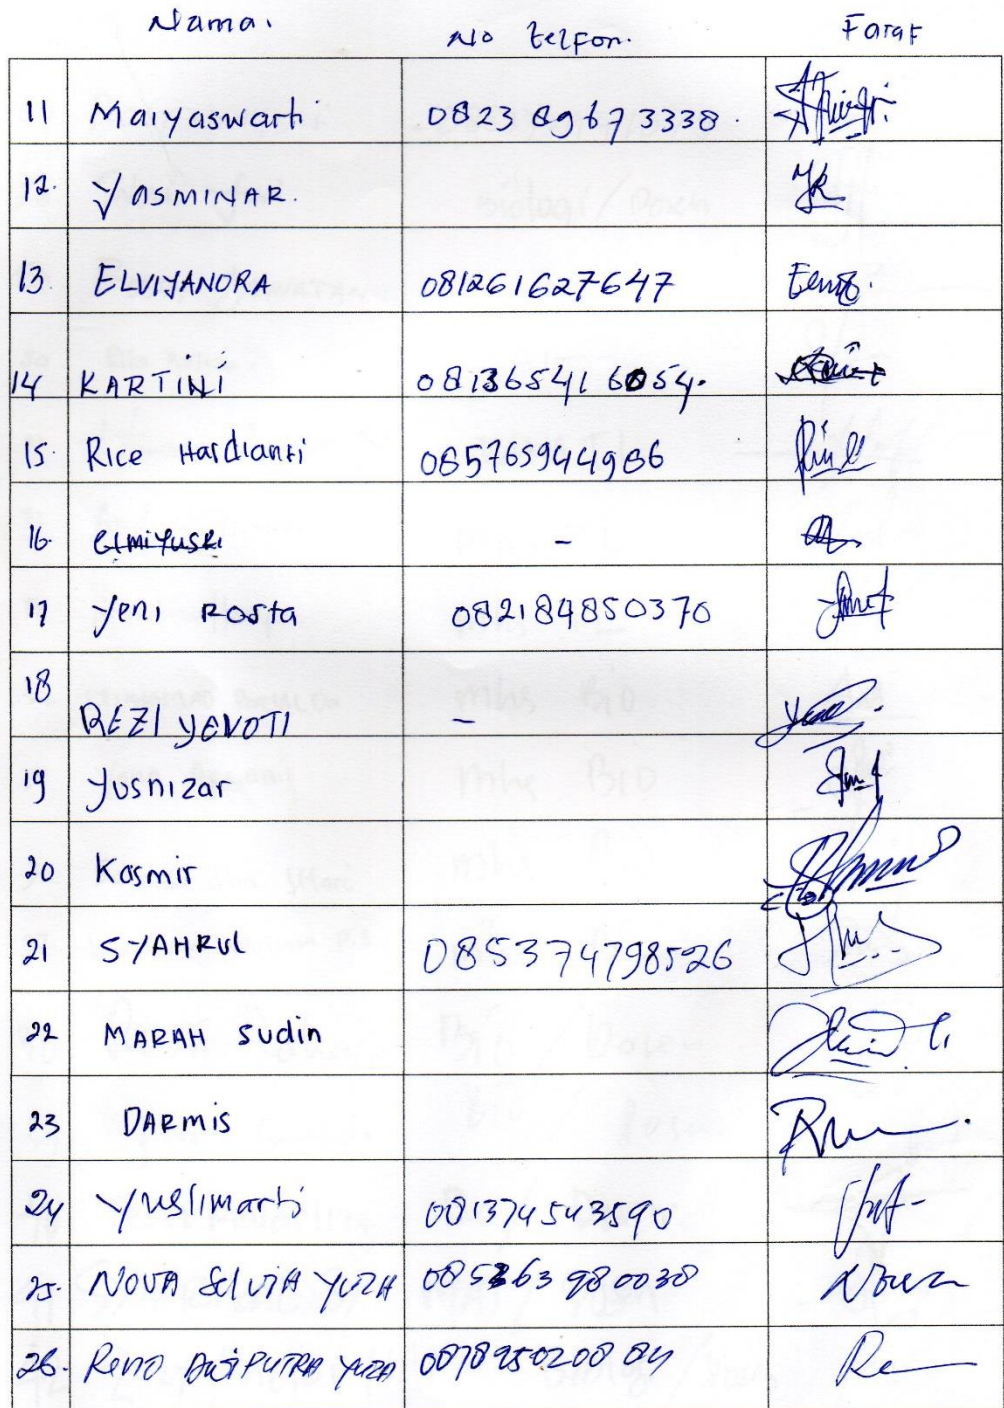 Nama. No telfon. Faraf
11 Maiyaswarti 082389673338.
12. YASMINAR.
13. ELVIYANDRA 081261627647
14 KARTINI 081365416054.
15. Rice Hardianti 085765944986
16. Elmiyuski -
17 Yeni Rosta 082184850370
18 REZI YEVOTI -
19 Yusnizar
20 Kasmir
21 SYAHRUL 085374798526
22 MARAH Sudin
23 DARMIS
24 Yuslimarti 081374543590
25. NOVA SELVIA YUZA 085263980030
26. RENO PUTRA YUZA